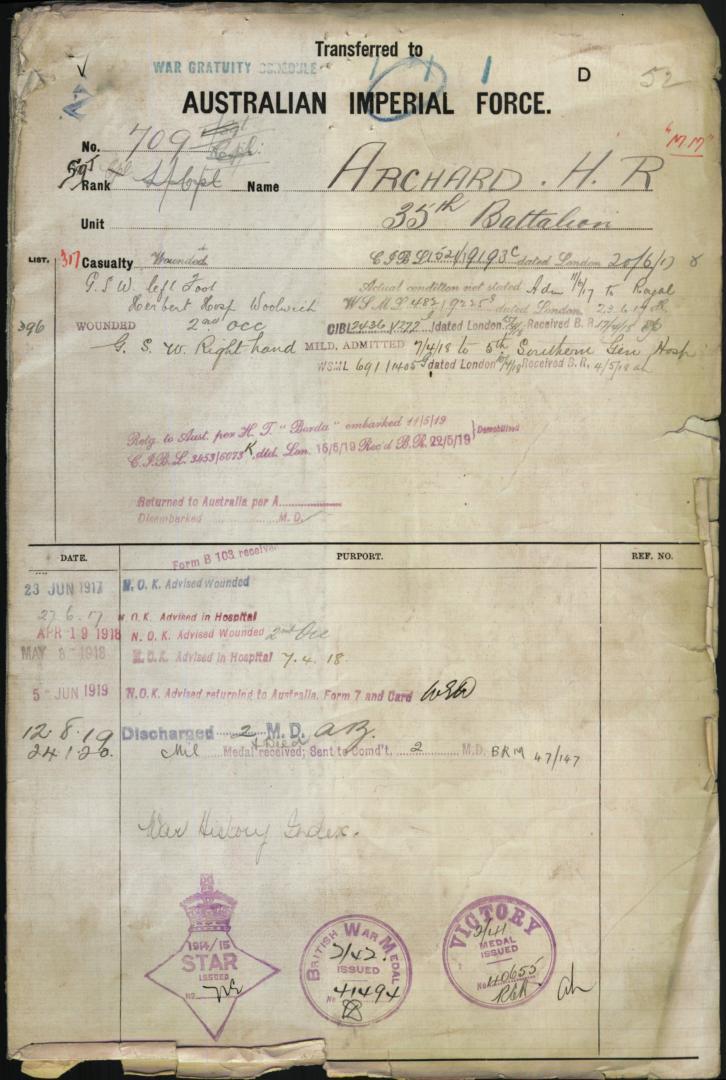 Transferred to
WAR GRATUITY SCHEDULE
D
52
AUSTRALIAN IMPERIAL FORCE.
"MM"
No. 709
Sgt
Rank
Name ARCHARD. H. R
Unit 35th Battalion
LIST.
317 Casualty Wounded C.I.B.L 1521/9193c dated London 20/6/17
G.S.W. left Foot Actual condition not stated Adm 11/6/17 to Royal
Herbert Hosp Woolwich W.S.M.L 482/9225s dated London. 23.6.17
396 WOUNDED 2nd occ CIBL 2436 dated London Received B.R. 17/4/18
G. S. W. Right hand MILD, ADMITTED 7/4/18 to 5th Southern Gen Hosp
WSML 691/1405 dated London Received B.R. 4/5/18
Retg. to Aust. per H. T. "Borda" embarked 11/5/19
C.I.B.L. 3453/6073 K, dtd. Lon. 15/5/19 Rec'd B.R. 22/5/19 } Demobilised
Returned to Australia per A
Disembarked M.D.
DATE. PURPORT. REF. NO.
Form B 103 received
23 JUN 1917 N.O.K. Advised Wounded
27.6.17 N.O.K. Advised in Hospital
APR 19 1918 N.O.K. Advised Wounded 2nd Occ
MAY 8 - 1918 N.O.K. Advised in Hospital 7.4.18
5 - JUN 1919 N.O.K. Advised returning to Australia. Form 7 and Card
12.8.19 Discharged 2 M.D.
24.1.20. Mil Medal received; Sent to Comd't. 2 M.D. BRM 47/147
War History Index.
1914/15
STAR
ISSUED
No. NE
BRITISH WAR MEDAL
2/42.
ISSUED
No 41494
VICTORY
2/41
MEDAL
ISSUED
No 40655